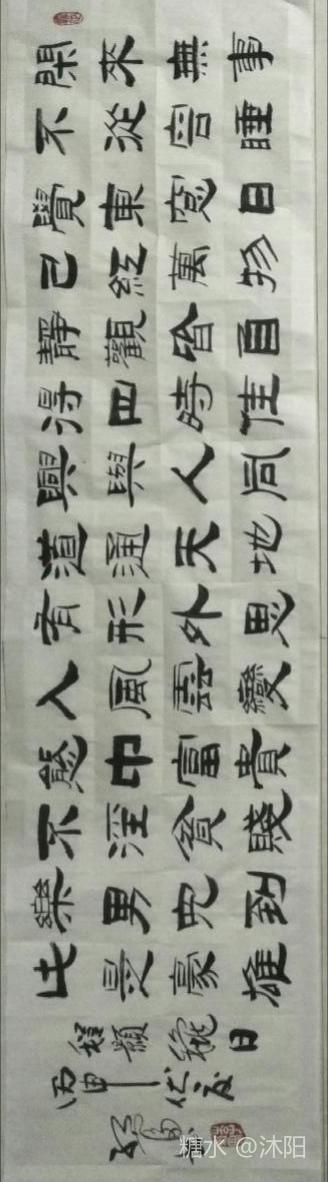 閑來無事
不從容睡
覺東窗日
已紅萬物
靜觀皆自
得四時佳
興與人同
道通天地
有形外思
入風雲變
態中富貴
不淫貧賤
樂男兒到
此是豪雄
程顥秋日
丙申
糖水 @沐阳